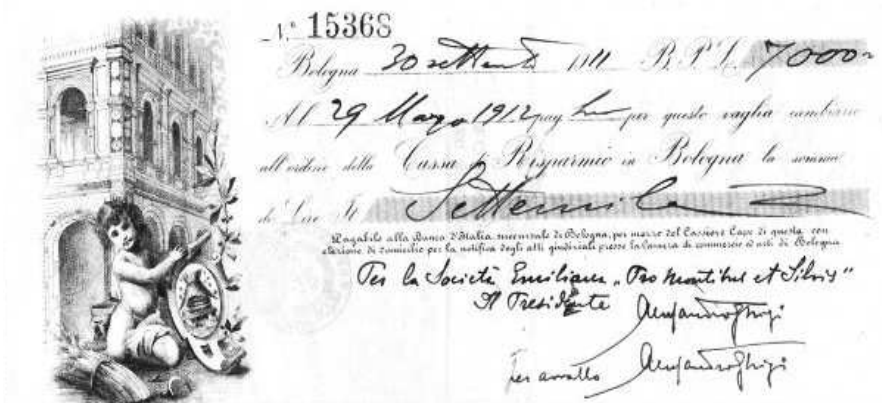 N.° 15368
Bologna 30 settembre 1911 B. P. L. 7000=
Al 29 Marzo 1912 pag per questo vaglia cambiario
all'ordine della Cassa di Risparmio in Bologna la somma
di Lire It. Settemila
Pagabile alla Banca d'Italia succursale di Bologna, per mezzo del Cassiere Capo di questa con
elezione di domicilio per la notifica degli atti giudiziali presso la Camera di commercio ed arti di Bologna
Per la Società Emiliana "Pro Montibus et Silvis"
Il Presidente Alessandro Ghigi
per avallo Alessandro Ghigi